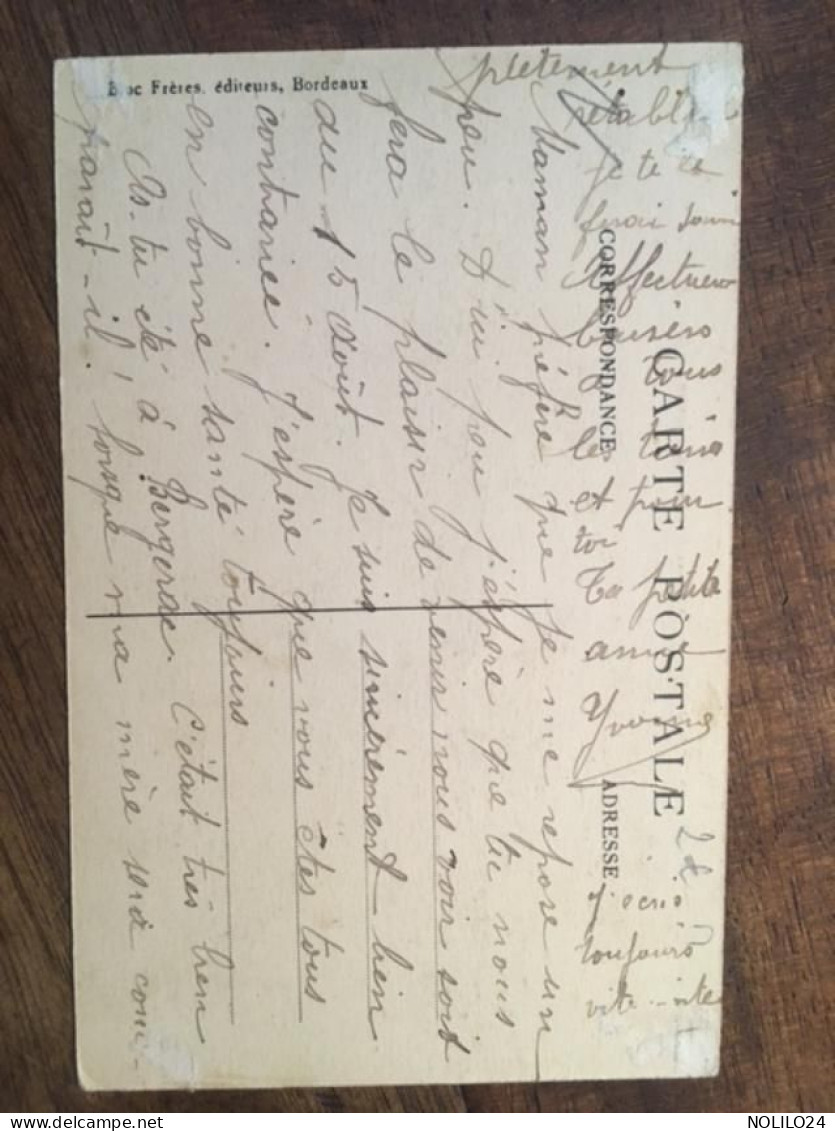 CARTE POSTALE
CORRESPONDANCE
ADRESSE
Bloc Frères, éditeurs, Bordeaux
Maman préfère que je me repose un
peu. D'ici peu j'espère que tu nous
fera le plaisir de venir nous voir soit
au 15 Août. Je suis sincèrement bien
contrariée. J'espère que vous êtes tous
en bonne santé toujours
As-tu été à Bergerac. C'était très bien
paraît-il! lorsque ma mère sera com-
plètement
rétablie
je te le
ferai savoir
Affectueux
baisers
à tous
de tous
et pour
toi
Ta petite
amie
Yvonne
J'écris
toujours
vite-vite
NOLILO24